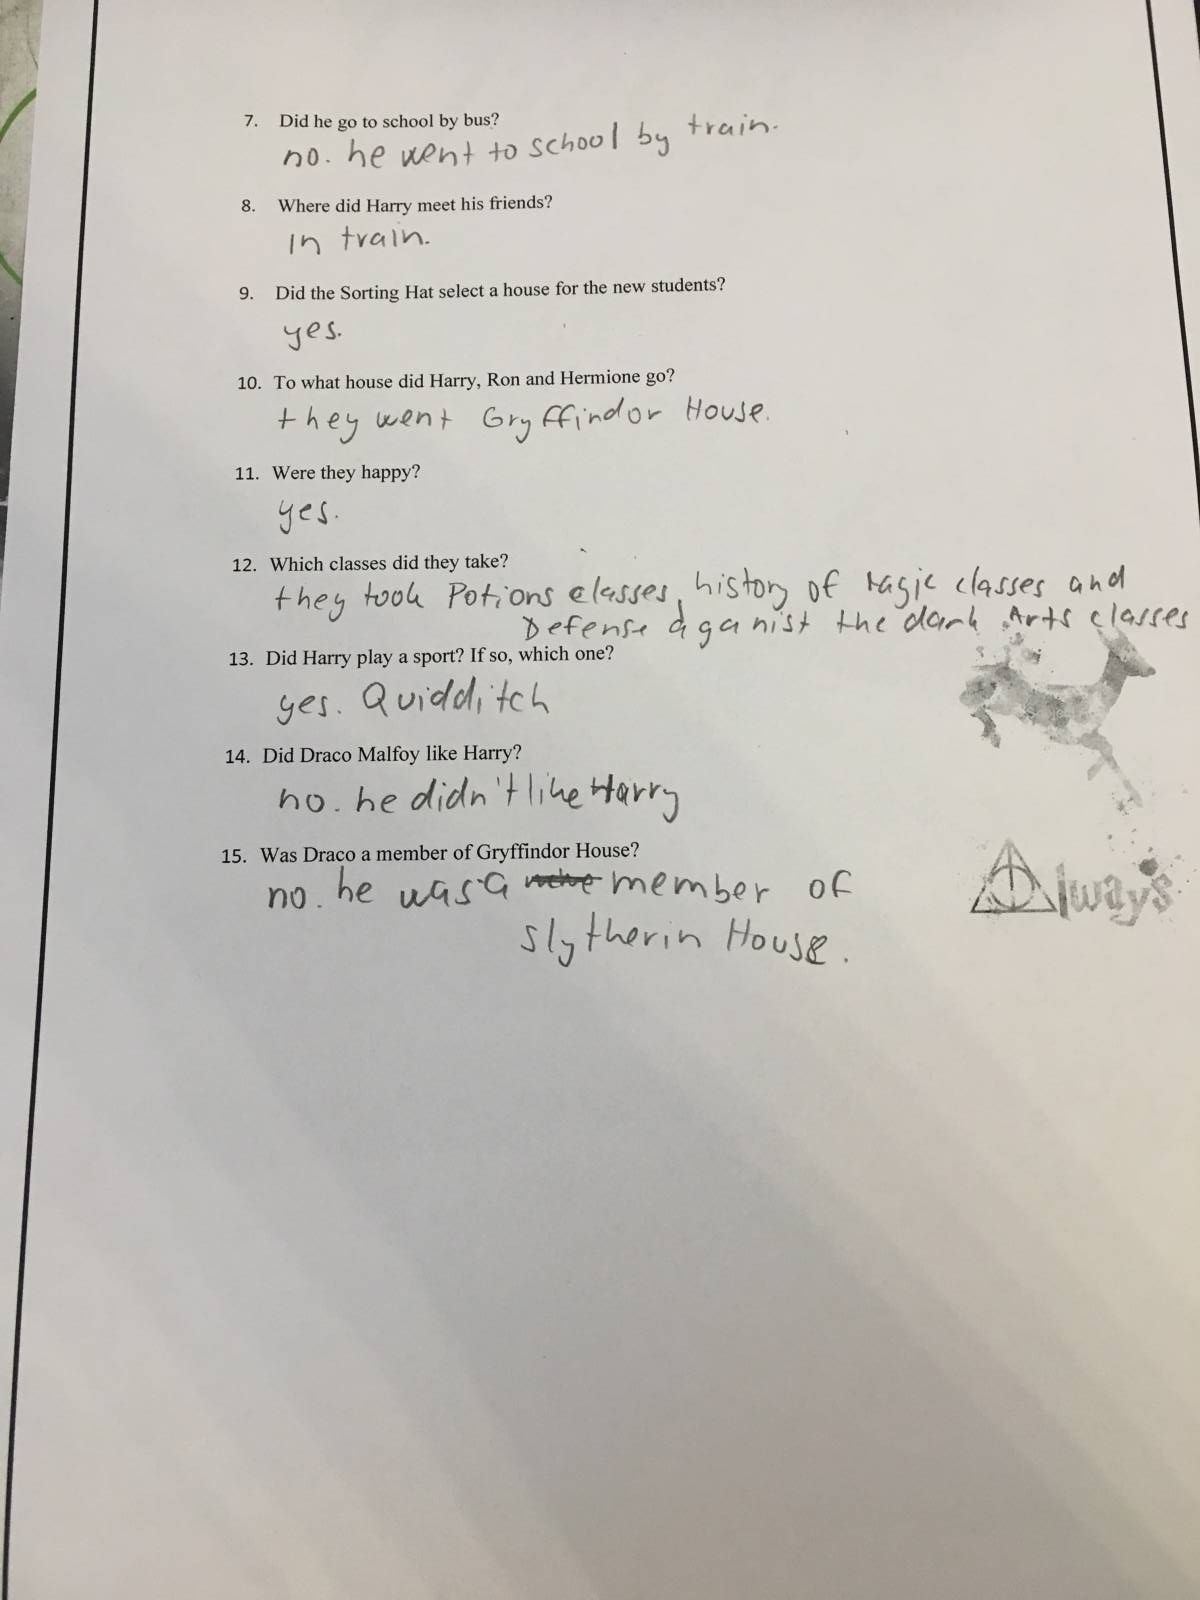 7. Did he go to school by bus?
no. he went to school by train.
8. Where did Harry meet his friends?
In train.
9. Did the Sorting Hat select a house for the new students?
yes.
10. To what house did Harry, Ron and Hermione go?
they went Gryffindor House.
11. Were they happy?
yes.
12. Which classes did they take?
they took Potions classes, history of magic classes and
Defense aganist the dark Arts classes
13. Did Harry play a sport? If so, which one?
yes. Quidditch
14. Did Draco Malfoy like Harry?
no. he didn't like Harry
15. Was Draco a member of Gryffindor House?
no. he was a member of
Slytherin House.
Always